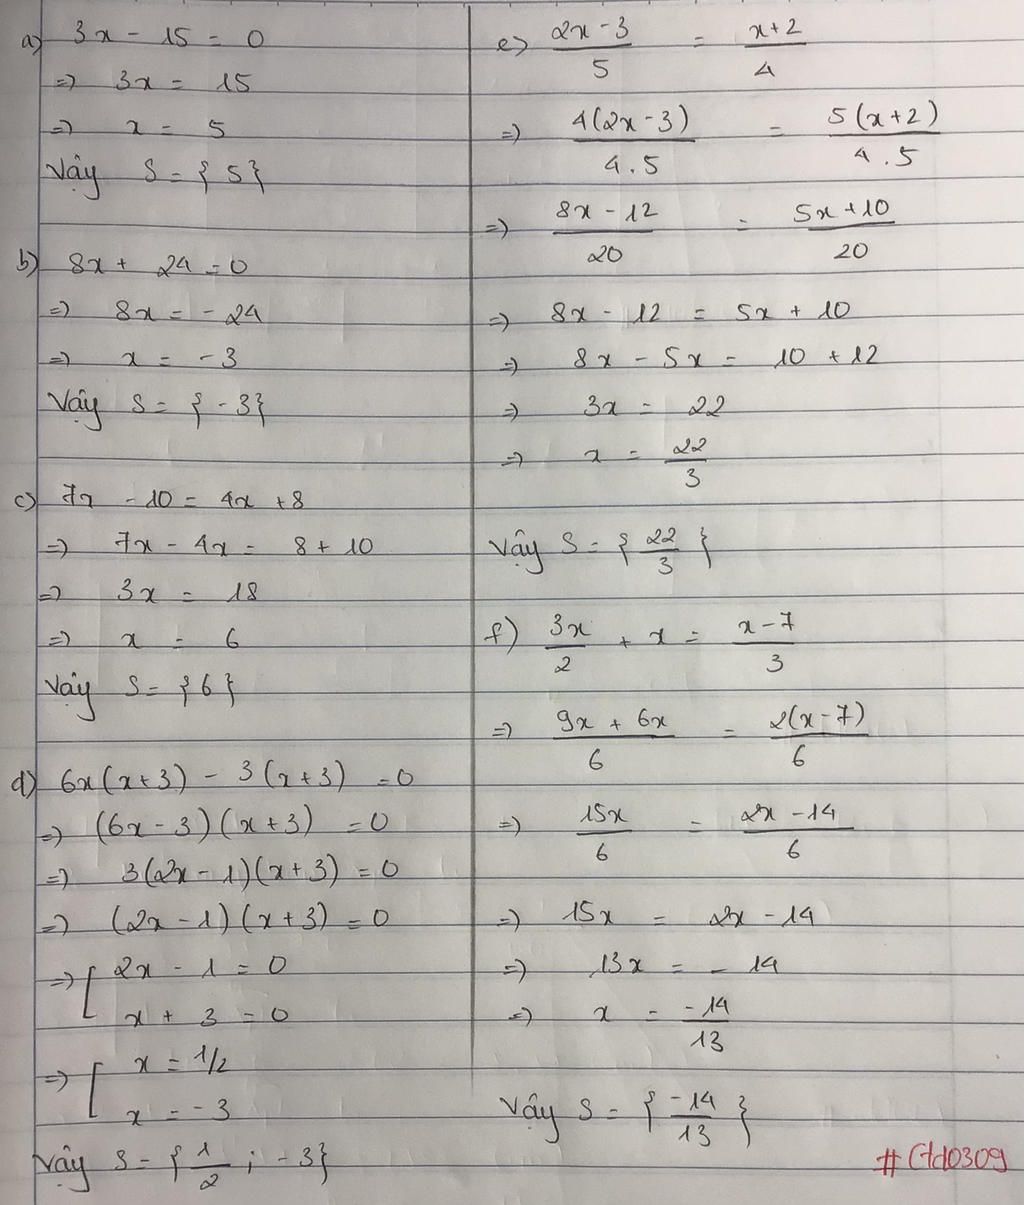 a) 3x - 15 = 0
=> 3x = 15
=> x = 5
Vậy S = { 5 }
b) 8x + 24 = 0
=> 8x = - 24
=> x = - 3
Vậy S = { - 3 }
c) 7x - 10 = 4x + 8
=> 7x - 4x = 8 + 10
=> 3x = 18
=> x = 6
Vậy S = { 6 }
d) 6x(x+3) - 3(x+3) = 0
=> (6x - 3)(x+3) = 0
=> 3(2x - 1)(x+3) = 0
=> (2x - 1)(x+3) = 0
=> [ 2x - 1 = 0
x + 3 = 0
=> [ x = 1/2
x = - 3
Vậy S = { 1/2 ; - 3 }
e) (2x - 3)/5 = (x+2)/4
=> 4(2x - 3)/4.5 = 5(x+2)/4.5
=> (8x - 12)/20 = (5x + 10)/20
=> 8x - 12 = 5x + 10
=> 8x - 5x = 10 + 12
=> 3x = 22
=> x = 22/3
Vậy S = { 22/3 }
f) 3x/2 + x = (x - 7)/3
=> (9x + 6x)/6 = 2(x - 7)/6
=> 15x/6 = (2x - 14)/6
=> 15x = 2x - 14
=> 13x = - 14
=> x = -14/13
Vậy S = { -14/13 }
#Ctd0309